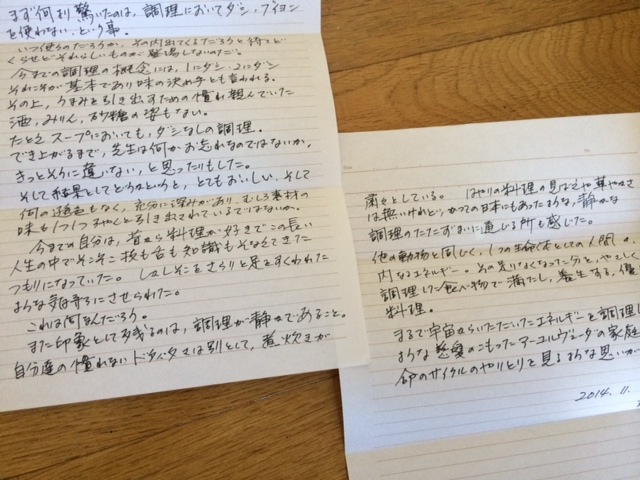 まず何より驚いたのは、調理においてダシ、ブイヨン
を使わない、という事。
いつ使うのだろうか、その内出てくるだろうと待てど
くらせどそれらしいものが登場しないのだ。
今までの調理の概念には、1にダシ、2にダシ
それこそが基本であり味の決め手とも言われる。
その上、うまみを引き出すための慣れ親んでいた
酒、みりん、砂糖の姿もない。
たとえスープにおいても、ダシなしの調理。
でき上がるまで、先生は何かお忘れなのではないか、
きっとそうに違いない、と思ったりもした。
そして結果としてどうかというと、とてもおいしい。そして
何の遜色もなく、充分に深みがあり、むしろ素材の
味も1つ1つちゃんと引き出されているではないか。
今まで自分は、昔から料理が好きでこの長い
人生の中でそこそこ技も舌も知識もそなえてきた
つもりになっていた。しかしそこをさらりと足をすくわれた
ような気持ちにさせられた。
これは何なんだろう。
また印象として残るのは、調理が静かであること。
自分達の慣れないドタバタさは別として、煮炊きが
粛々としている。はやりの料理の見ばえや華やかさ
は無いけれど、かつての日本にもあったような、静かな
調理のたたずまいに通じる所も感じた。
他の動物と同じく、1つの生命体としての人間の
内なるエネルギー。その足りなくなった分を、やさしく
調理した食べ物で満たし、養生する、優
料理。
まるで宇宙からいただいたエネルギーを調理し
ような慈愛のこもったアーユルヴェーダの家庭
命のサイクルのやりとりを見るような思いが
2014.11.